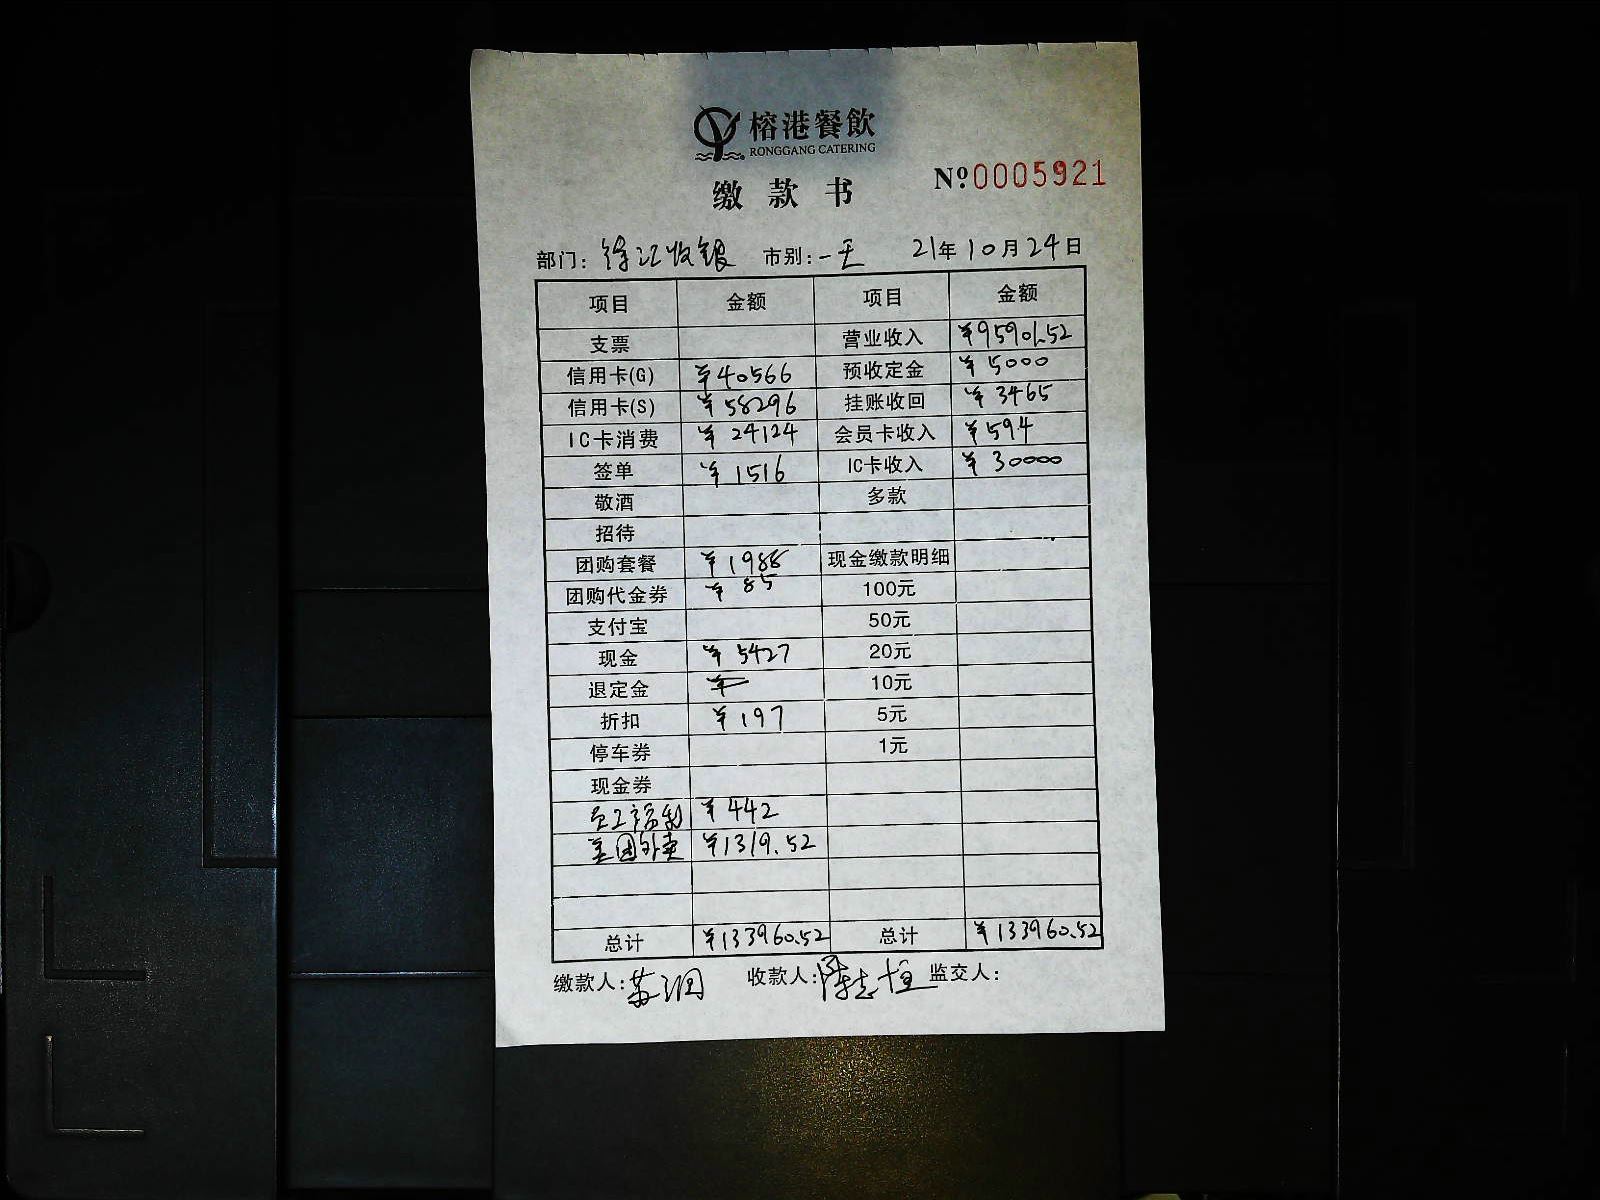 榕港餐飲
RONGGANG CATERING
缴款书
Nº0005921
部门: 徐汇收银 市别: 一天 21年10月24日
项目 金额 项目 金额
支票 营业收入 ¥95901.52
信用卡(G) ¥40566 预收定金 ¥5000
信用卡(S) ¥58296 挂账收回 ¥3465
IC卡消费 ¥24124 会员卡收入 ¥594
签单 ¥1516 IC卡收入 ¥30000
敬酒 多款
招待
团购套餐 ¥1988 现金缴款明细
团购代金券 ¥85 100元
支付宝 50元
现金 ¥5427 20元
退定金 ¥ 10元
折扣 ¥197 5元
停车券 1元
现金券
员工福利 ¥442
美团外卖 ¥1319.52
总计 ¥133960.52 总计 ¥133960.52
缴款人: 苏润 收款人: 志恒 监交人: